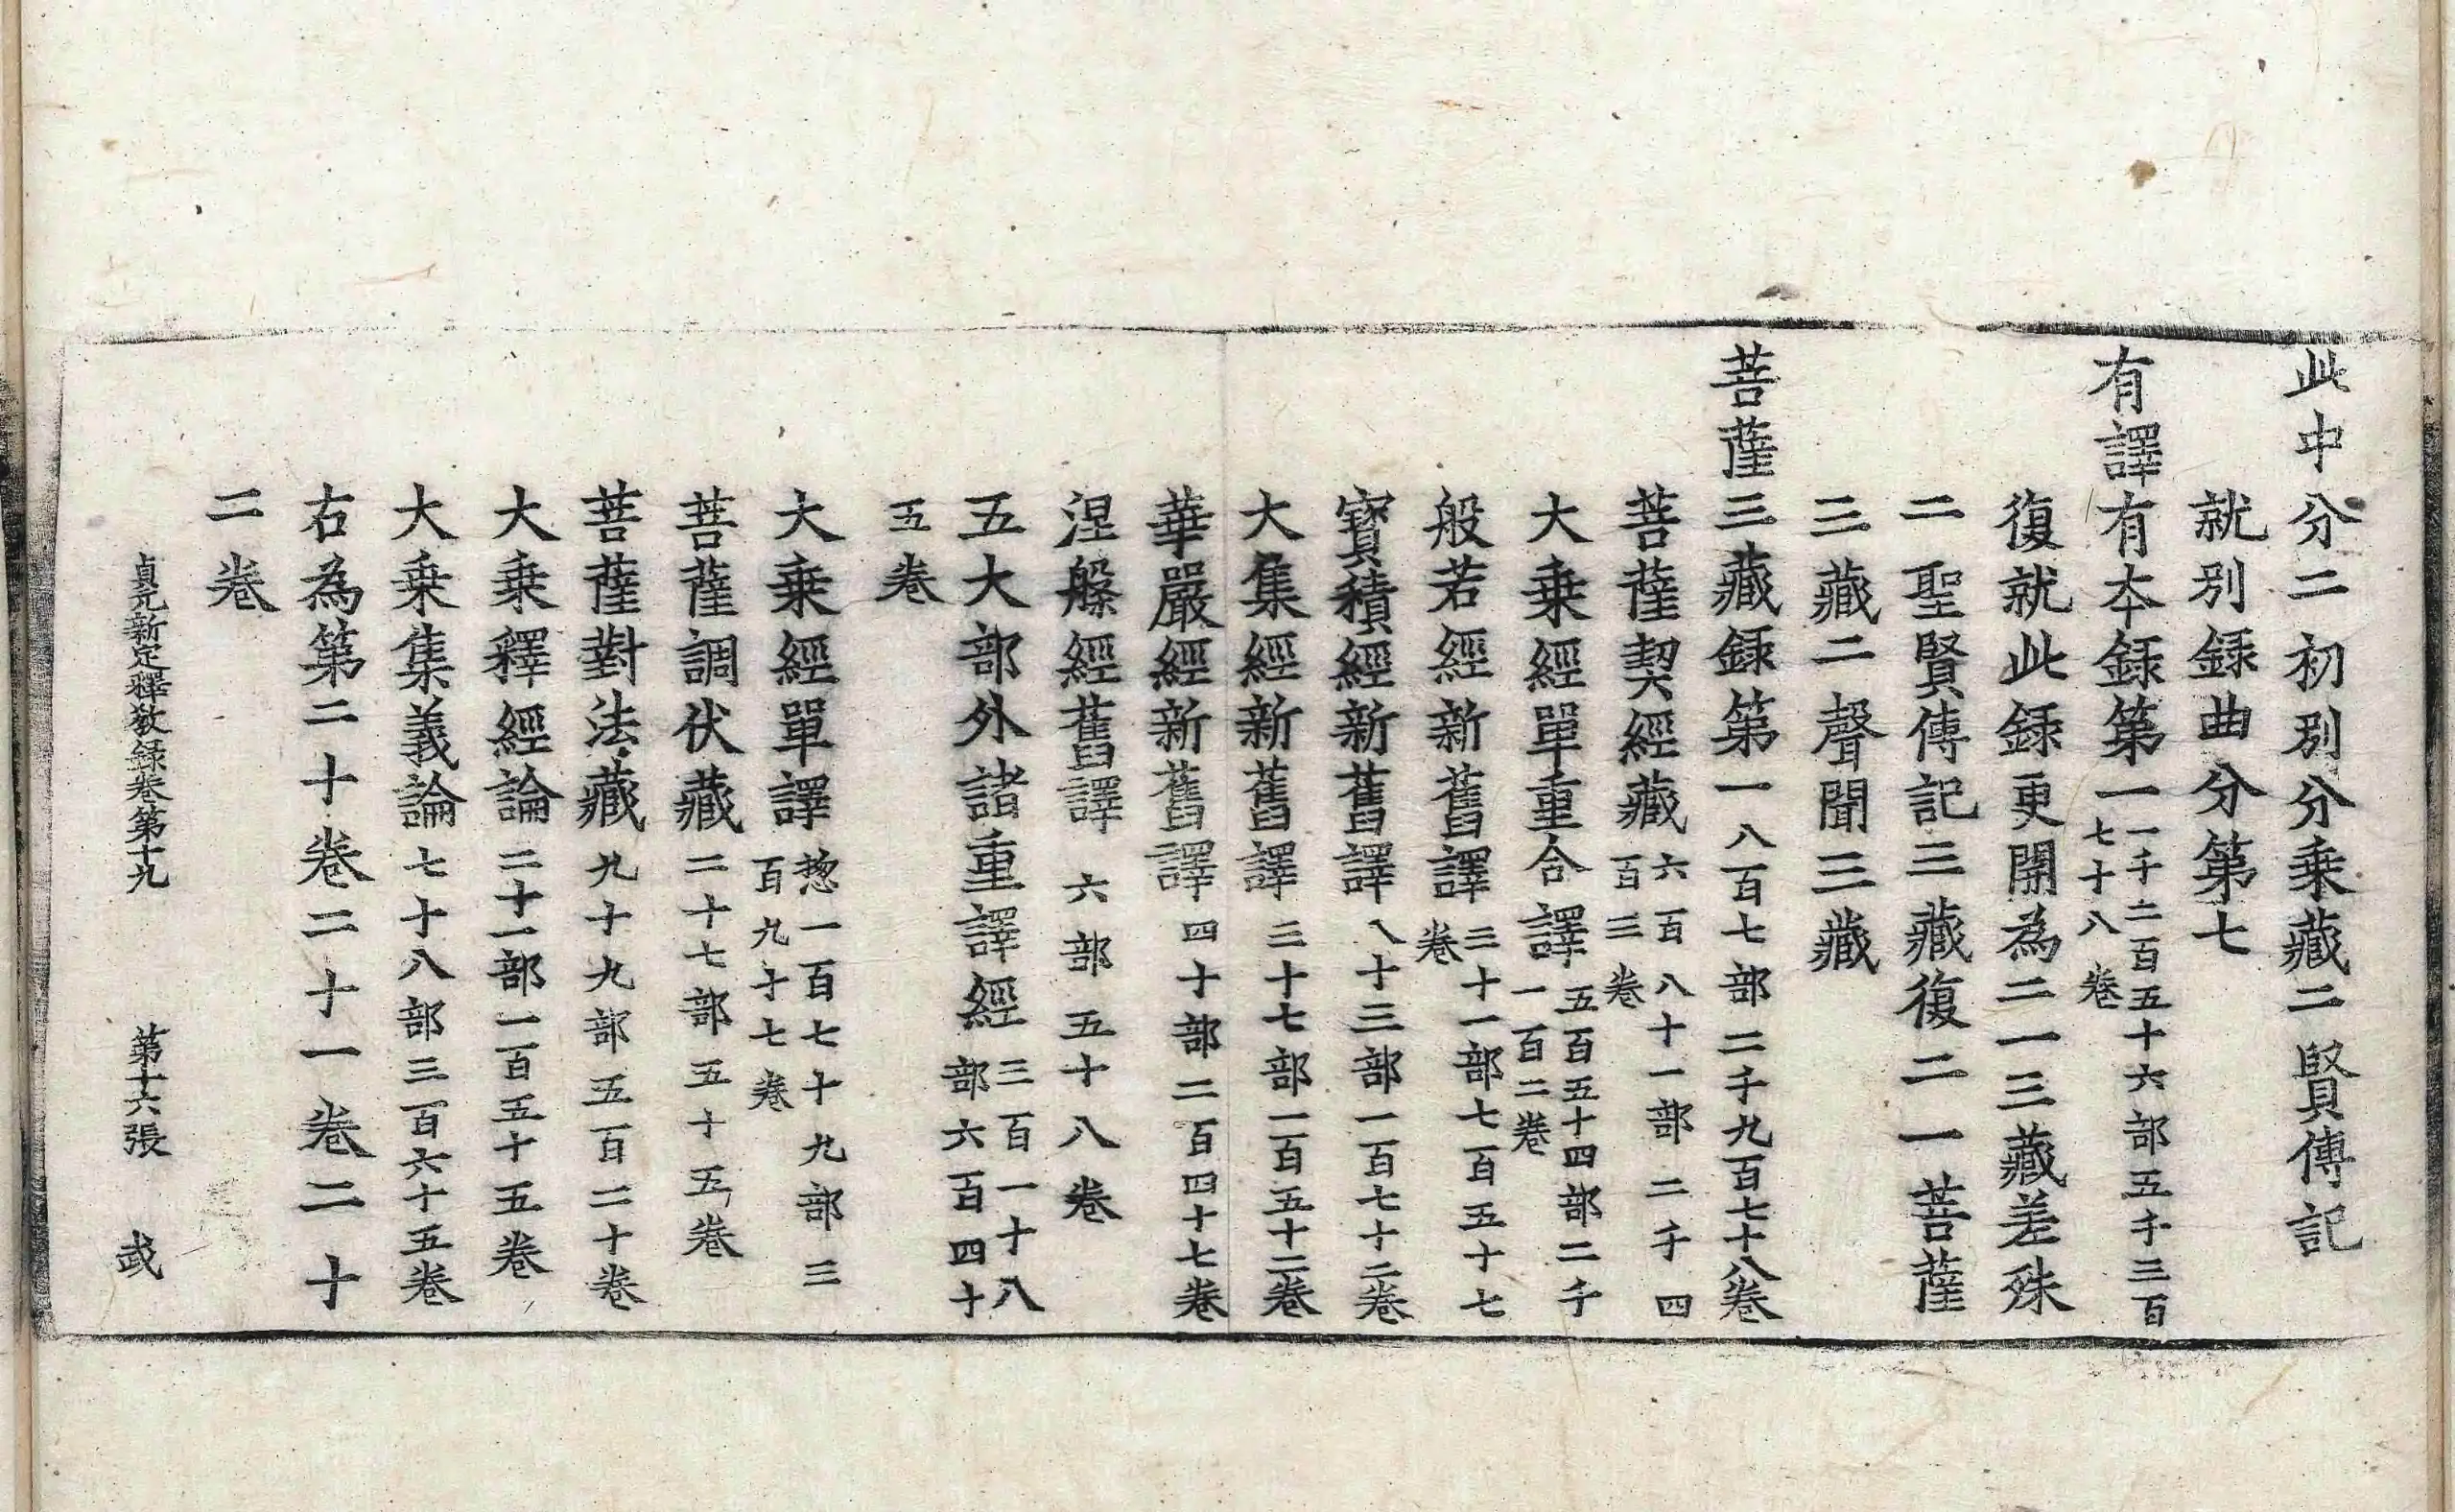 此中分二初別分乗藏二賢傳記
就別録曲分第七
有譯有夲録第一一千二百五十六部五千三百七十八卷
復就此録更開為二一三藏差殊
二聖賢傳記三藏復二一菩薩
三藏二聲聞三藏
菩薩三藏録第一八百七部二千九百七十八卷
菩薩契經藏六百八十一部二千四百三卷
大乗經單重合譯五百五十四部二千一百二卷
般若經新舊譯三十一部七百五十七卷
寳積經新舊譯八十三部一百七十二卷
大集經新舊譯三十七部一百五十二卷
華嚴經新舊譯四十部二百四十七卷
涅槃經舊譯六部五十八卷
五大部外諸重譯經三百一十八部六百四十
五卷
大乗經單譯惣一百七十九部三百九十七卷
菩薩調伏藏二十七部五十五卷
菩薩對法藏九十九部五百二十卷
大乗釋經論二十一部一百五十五卷
大乗集義論七十八部三百六十五卷
右為第二十卷二十一卷二十
二卷
貞元新定釋教録卷第十九 第十六張 武